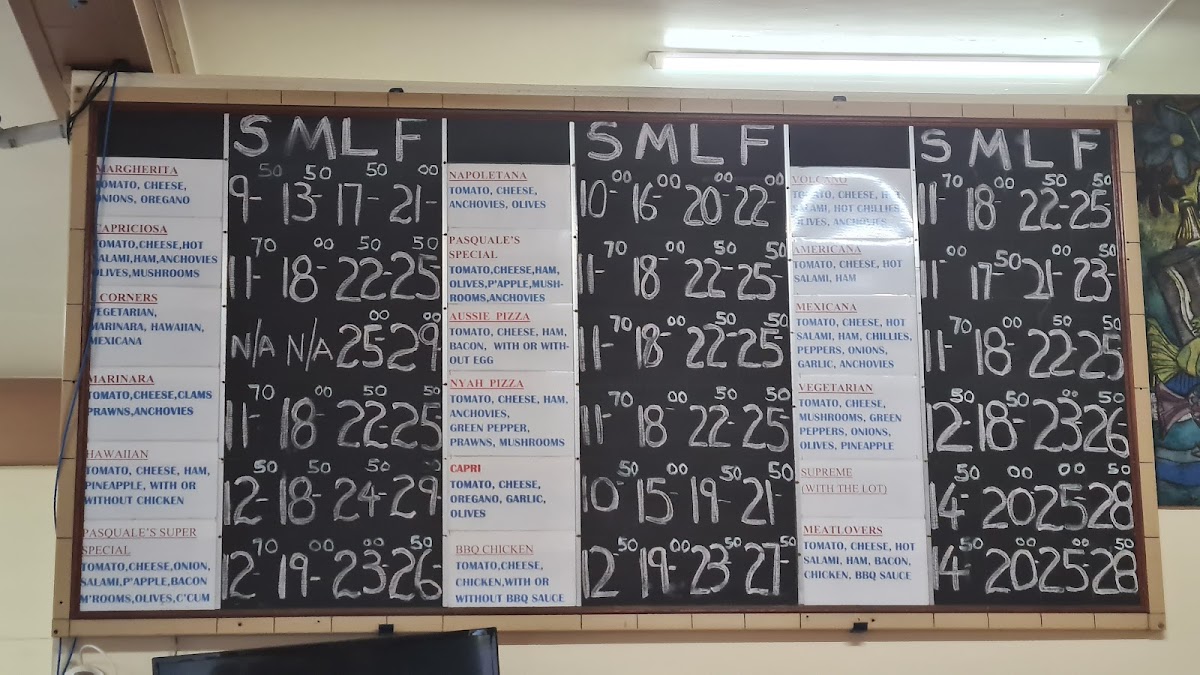 S M L F
MARGHERITA
TOMATO, CHEESE,
ONIONS, OREGANO
9-50 13-50 17-50 21-00
CAPRICIOSA
TOMATO,CHEESE,HOT
SALAMI,HAM,ANCHOVIES
OLIVES,MUSHROOMS
11-70 18-00 22-50 25-50
CORNERS
VEGETARIAN,
MARINARA, HAWAIIAN,
MEXICANA
N/A N/A 25-00 29-00
MARINARA
TOMATO,CHEESE,CLAMS
PRAWNS,ANCHOVIES
11-70 18-00 22-50 25-50
HAWAIIAN
TOMATO, CHEESE, HAM,
PINEAPPLE, WITH OR
WITHOUT CHICKEN
12-50 18-50 24-50 29-
PASQUALE'S SUPER
SPECIAL
TOMATO,CHEESE,ONION,
SALAMI,P'APPLE,BACON
M'ROOMS,OLIVES,C'CUM
12-70 19-00 23-00 26-50
S M L F
NAPOLETANA
TOMATO, CHEESE,
ANCHOVIES, OLIVES
10-00 16-00 20-00 22-00
PASQUALE'S
SPECIAL
TOMATO,CHEESE,HAM,
OLIVES,P'APPLE,MUSH-
ROOMS,ANCHOVIES
11-70 18-00 22-50 25-50
AUSSIE PIZZA
TOMATO, CHEESE, HAM,
BACON, WITH OR WITH-
OUT EGG
11-70 18-00 22-50 25-50
NYAH PIZZA
TOMATO, CHEESE, HAM,
ANCHOVIES,
GREEN PEPPER,
PRAWNS, MUSHROOMS
11-70 18-00 22-50 25-50
CAPRI
TOMATO, CHEESE,
OREGANO, GARLIC,
OLIVES
10-50 15-00 19-50 21-50
BBQ CHICKEN
TOMATO,CHEESE,
CHICKEN,WITH OR
WITHOUT BBQ SAUCE
12-50 19-00 23-50 27-50
S M L F
VOLCANO
TOMATO, CHEESE, HOT
SALAMI, HOT CHILLIES,
OLIVES, ANCHOVIES
11-70 18-00 22-50 25-50
AMERICANA
TOMATO, CHEESE, HOT
SALAMI, HAM
11-00 17-50 21-00 23-50
MEXICANA
TOMATO, CHEESE, HOT
SALAMI, HAM, CHILLIES,
PEPPERS, ONIONS,
GARLIC, ANCHOVIES
11-70 18-00 22-50 25-50
VEGETARIAN
TOMATO, CHEESE,
MUSHROOMS, GREEN
PEPPERS, ONIONS,
OLIVES, PINEAPPLE
12-50 18-50 23-50 26-50
SUPREME
(WITH THE LOT)
14-50 20-00 25-00 28-50
MEATLOVERS
TOMATO, CHEESE, HOT
SALAMI, HAM, BACON,
CHICKEN, BBQ SAUCE
14-50 20-00 25-00 28-50